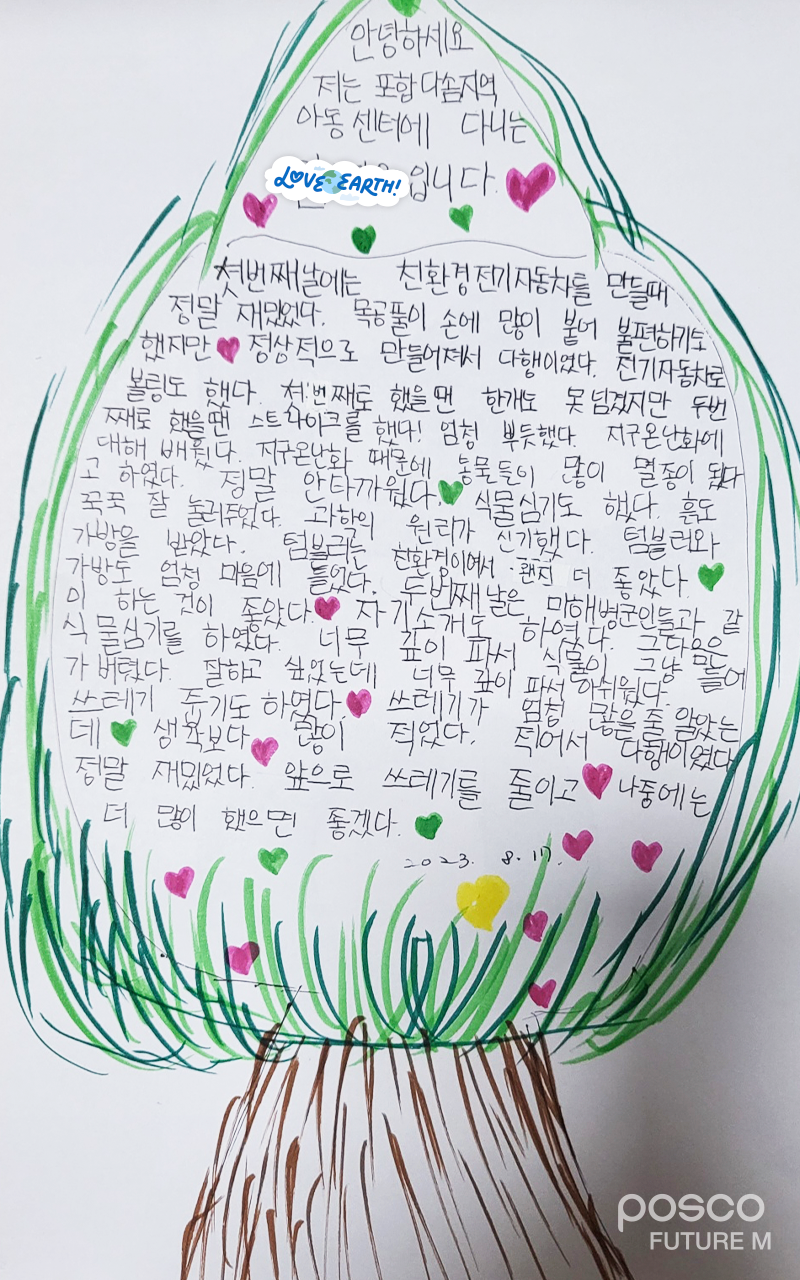 안녕하세요
저는 포항 다솜지역
아동 센터에 다니는
입니다.
LOVE EARTH!
첫번째날에는 친환경전기자동차를 만들때
정말 재밌었다. 목공풀이 손에 많이 붙어 불편하기도
했지만 정상적으로 만들어져서 다행이였다. 전기자동차로
볼링도 했다. 첫번째로 했을땐 한개도 못넘겼지만 두번
째로 했을땐 스트라이크를 했다! 엄청 뿌듯했다. 지구온난화에
대해 배웠다. 지구온난화 때문에 동물들이 많이 멸종이 됬다
고 하였다. 정말 안타까웠다. 식물심기도 했다. 흙도
꾹꾹 잘 눌러주었다. 과학의 원리가 신기했다. 텀블러와
가방을 받았다. 텀블러는 친환경이여서 왠지 더 좋았다.
가방도 엄청 마음에 들었다. 두번째날은 미해병군인들과 같
이 하는 것이 좋았다. 자기소개도 하였다. 그다음은
식물심기를 하였다. 너무 깊이 파서 식물이 그냥 눕
가버렸다. 잘하고 싶었는데 너무 깊이 파서 아쉬웠다. 들어
쓰레기 줍기도 하였다. 쓰레기가 엄청 많을줄 알았는
데 생각보다 많이 적었다. 적어서 다행이였다
정말 재밌었다. 앞으로 쓰레기를 줄이고 나중에는
더 많이 했으면 좋겠다.
2023. 8. 17.
posco
FUTURE M